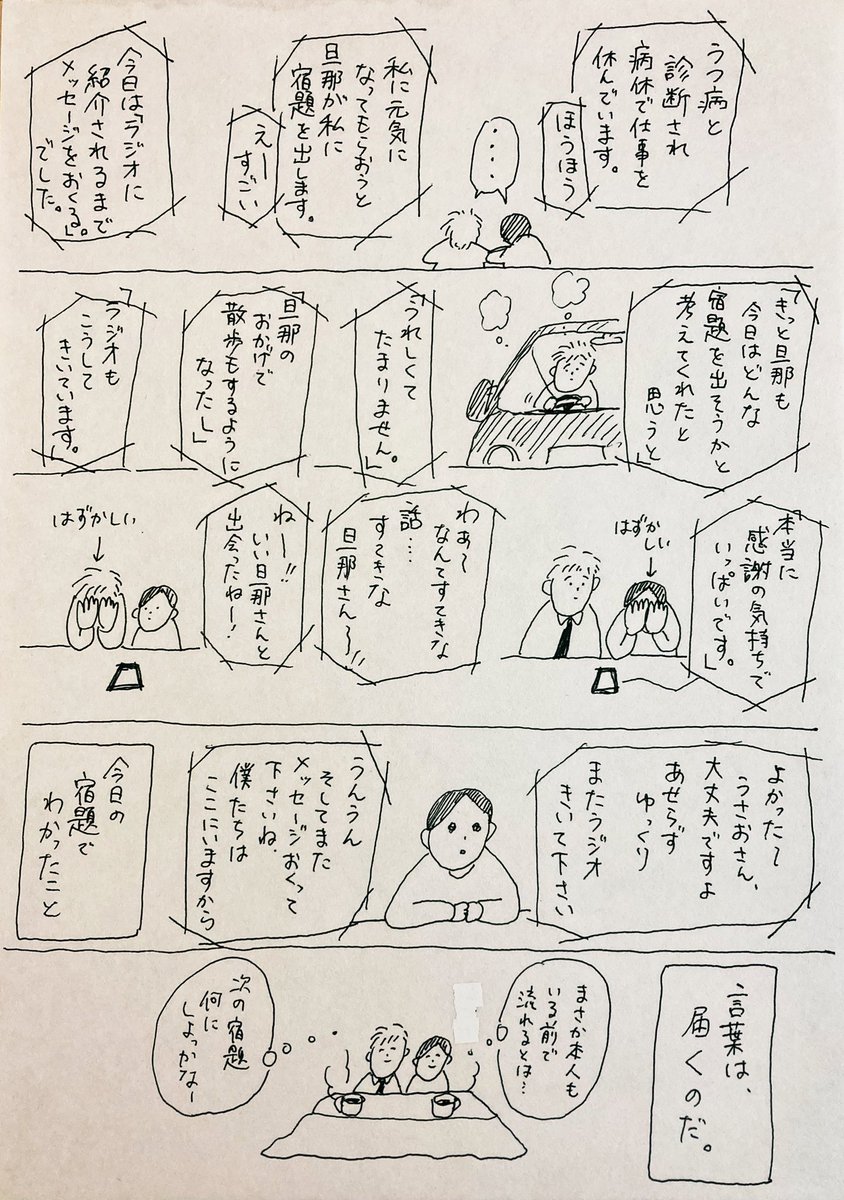 うつ病と
診断され
病休で仕事を
休んでいます。
ほうほう
・・・・
私に元気に
なってもらおうと
旦那が私に
宿題を出します。
えー
すごい
今日は「ラジオに
紹介されるまで
メッセージをおくる」。
でした。
「きっと旦那も
今日はどんな
宿題を出そうかと
考えてくれたと
思うと」
「うれしくて
たまりません。」
「旦那の
おかげで
散歩もするように
なったし」
「ラジオも
こうして
きいています。」
「本当に
感謝の気持ちで
いっぱいです。」
はずか
しい
わぁ〜
なんてすてきな
話…。
すてきな
旦那さん〜!!
ねー!!
いい旦那さんと
出会ったねー!
はずかしい
よかった〜
うさおさん、
大丈夫ですよ
あせらず
ゆっくり
またラジオ
きいて下さい
うんうん
そしてまた
メッセージおくって
下さいね、
僕たちは
ここにいますから
今日の
宿題で
わかったこと
言葉は、
届くのだ。
まさか本人も
いる前で
流れるとは…
次の宿題
何に
しよっかなー